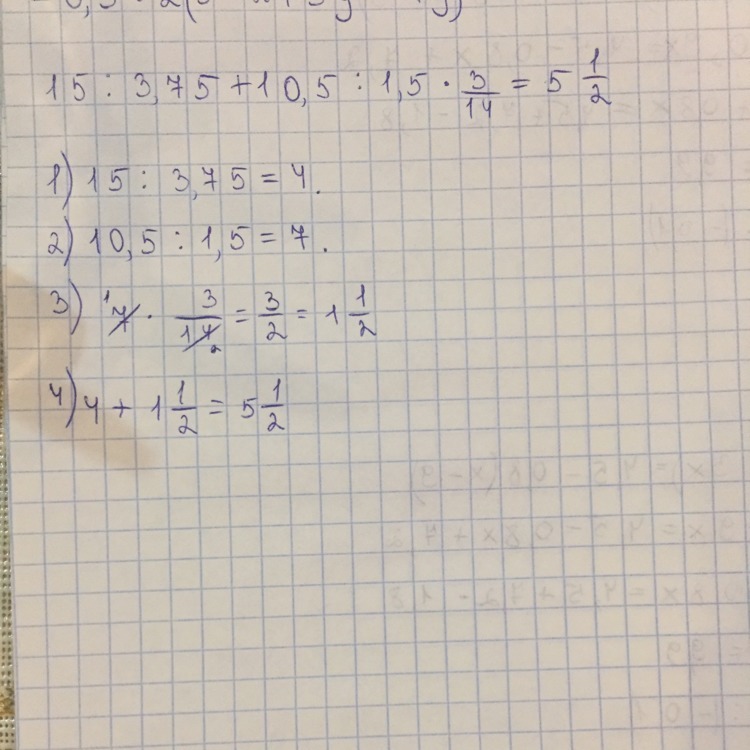 15 : 3,75 + 10,5 : 1,5 · 3/14 = 5 1/2
1) 15 : 3,75 = 4.
2) 10,5 : 1,5 = 7.
3) 7 · 3/14 = 3/2 = 1 1/2
4) 4 + 1 1/2 = 5 1/2